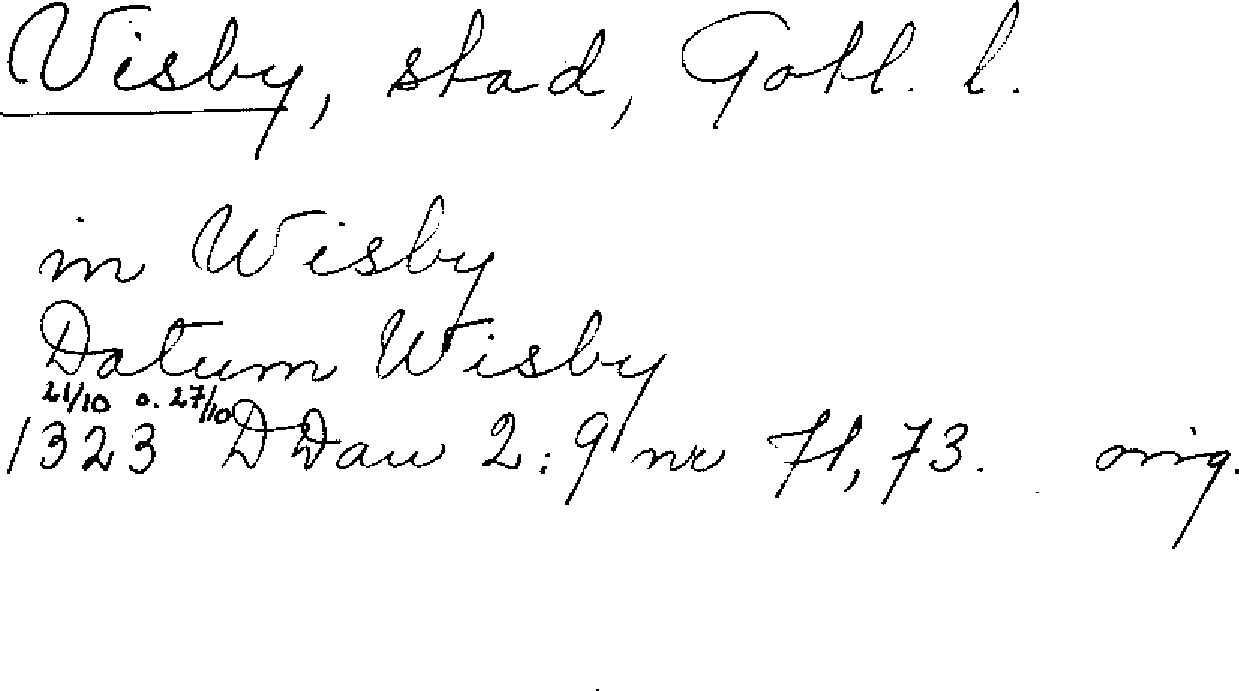 Visby, stad, Gotl. l.
in Wisby
Datum Wisby
21/10 o. 27/10
1323 DDan 2:9 nr 71, 73. orig.